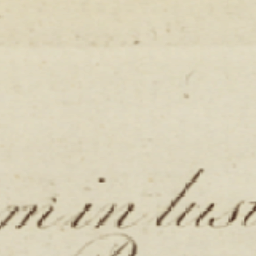 m in lust